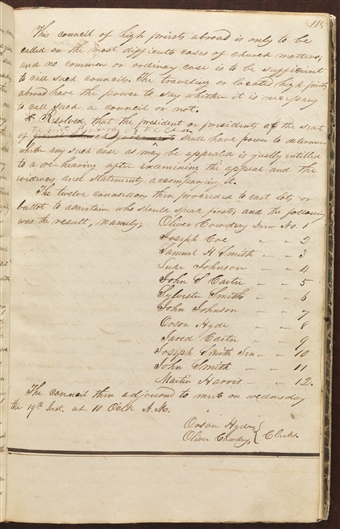 This council of high priests abroad is only to be
called on the most difficult cases of church matters,
and no common or ordinary case is to be sufficient
to call such council. the traveling or located high priests
abroad have the power to say whether it is necessary
to call such a council or not.
* Resolved, that the president or presidents of the seat
of shall have power to determine
such case as may be appealed is justly intitled
to a re-hearing after examining the appeal and the
evidence and statements accompanying it.
The twelve counsellors then proceeded to cast lots, or
ballot to ascertain who should speak first, and the following
was the result, namely; Oliver Cowdery No. 1
Joseph Coe " " 2
Samuel H Smith " " 3
Luke Johnson " " 4
John S Carter " " 5
Sylvester Smith " " 6
John Johnson " " 7
Orson Hyde " " 8
Jared Carter " " 9
Joseph Smith Sen " 10
John Smith " " 11
Martin Harris " " 12.
The council then adjourned to meet on wednesday
the 19th Inst. at 10 Oclk A.M.
Orson Hyde
Oliver Cowdery } Clerks.